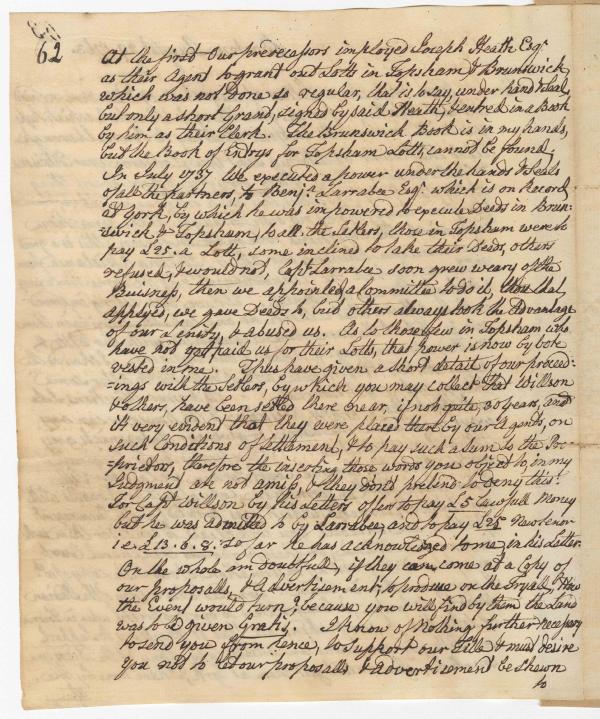 62
At the first our predecessors imployed Joseph Heath Esqr
as their Agent to grant out Lotts in Topsham & Brunswick,
which was not done so regular, that is to say, under hand & Seal,
but only a short Grand, signed by said Heath, & entred in a Book
by him as their Clerk. The Brunswick Book is in my hands,
but the Book of Entrys for Topsham Lotts, cannot be found.
In July 1737 We executed a power under the hands & Seals
of all the Partners, to Benja. Larrabee Esqr which is on Record
at York, by which he was impowered to execute Deeds in Brun=
swick & Topsham, to all the Setlers, those in Topsham were to
pay £25. a Lott, some inclined to take their Deeds, others
refused, & would not, Capt Larrabee soon grew weary of the
Buisness, then we appointed a Committee to do it, those that
applyed, we gave Deeds to, but others always took the Advantage
of our Lenity, & abused us. As to those few in Topsham who
have not yet paid us for their Lotts, that power is now by vote
vested in me. Thus have given a short detail of our proceed=
=ings with the Setlers, by which you may collect that Willson
& others, have been setled there near, if not quite, 30 years, and
it's very evident that they were placed there by our Agents, on
such Conditions of Settlement, & to pay such a sum to the Pro=
=prietors, therefore the inserting those words you object to, in my
Judgment are not amiss, & they don't pretend to deny this.
For Capt Willson by his Letters offers to pay £5 Lawfull Money
but he was admitted to by Larrabee, and to pay £25 New tenor
i.e. £13.6.8. so far he has acknowledged to me, in his Letter.
On the whole am doubtfull, if they can come at a Copy of
our Proposalls, & Advertisement, to produce on the Tryall, How
the Event would turn, because you will find by them the Land
was to be given Gratis. I know of nothing further necessary
to send you from hence, to support our Title & must desire
you not to let our proposalls & advertisement be shewn
to